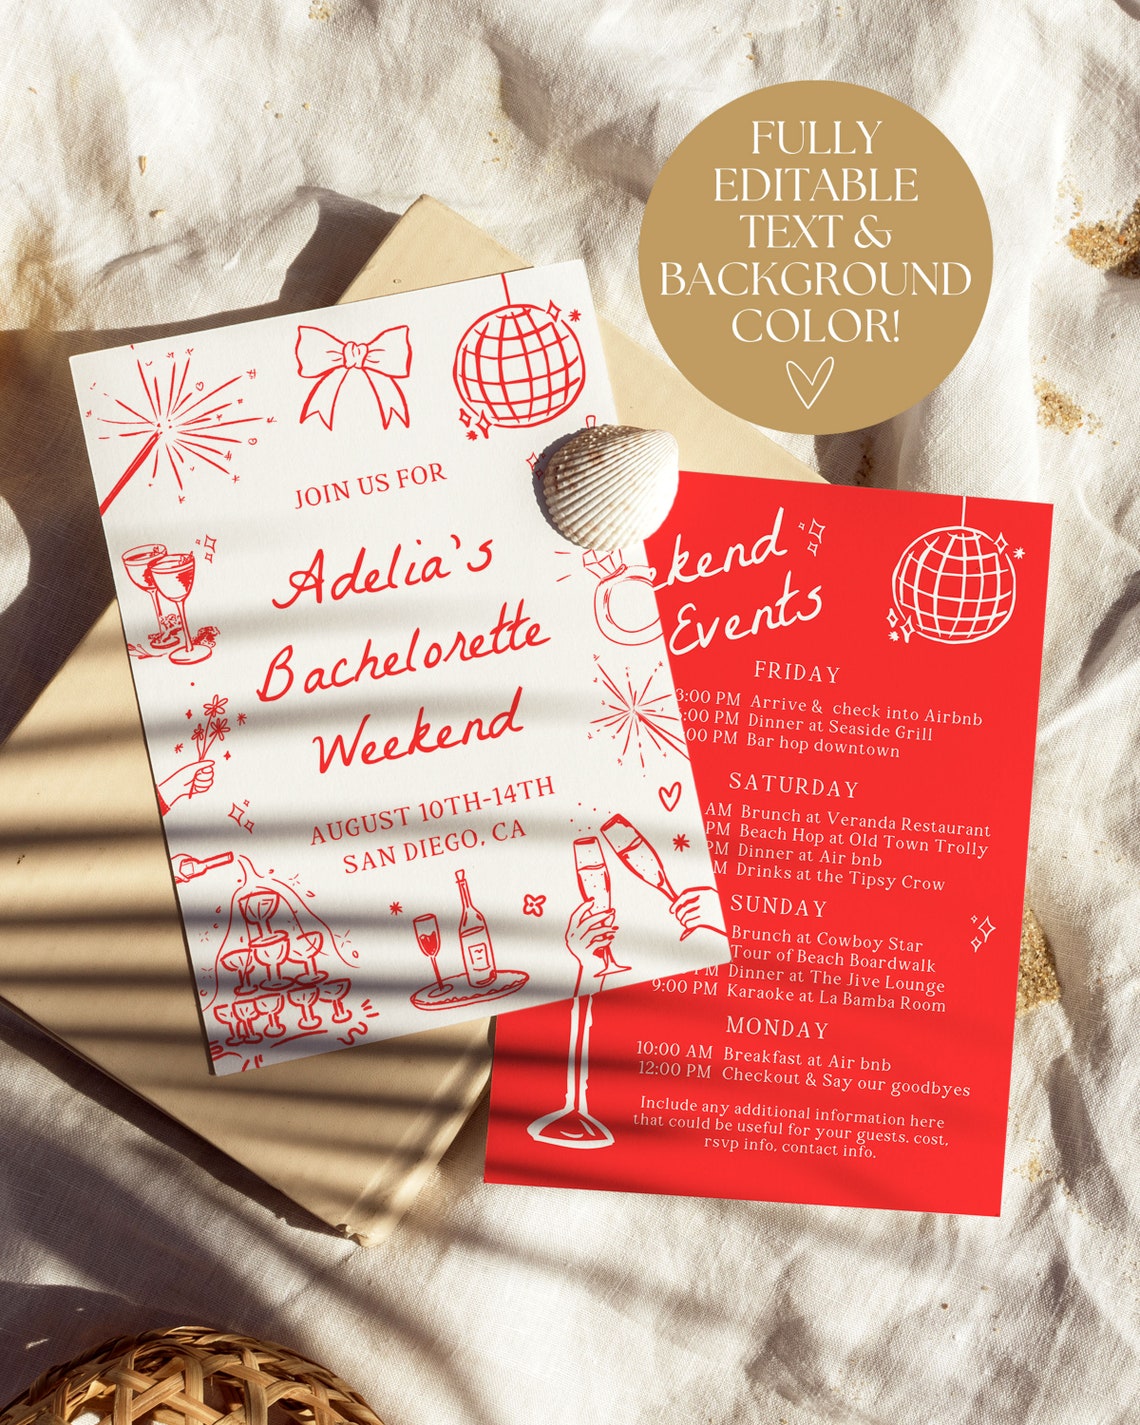 FULLY
EDITABLE
TEXT &
BACKGROUND
COLOR!
JOIN US FOR
Adelia's
Bachelorette
Weekend
AUGUST 10TH-14TH
SAN DIEGO, CA
kend
Events
FRIDAY
3:00 PM Arrive & check into Airbnb
:00 PM Dinner at Seaside Grill
00 PM Bar hop downtown
SATURDAY
AM Brunch at Veranda Restaurant
PM Beach Hop at Old Town Trolly
PM Dinner at Air bnb
M Drinks at the Tipsy Crow
SUNDAY
Brunch at Cowboy Star
Tour of Beach Boardwalk
PM Dinner at The Jive Lounge
9:00 PM Karaoke at La Bamba Room
MONDAY
10:00 AM Breakfast at Air bnb
12:00 PM Checkout & Say our goodbyes
Include any additional information here
that could be useful for your guests, cost,
rsvp info, contact info.